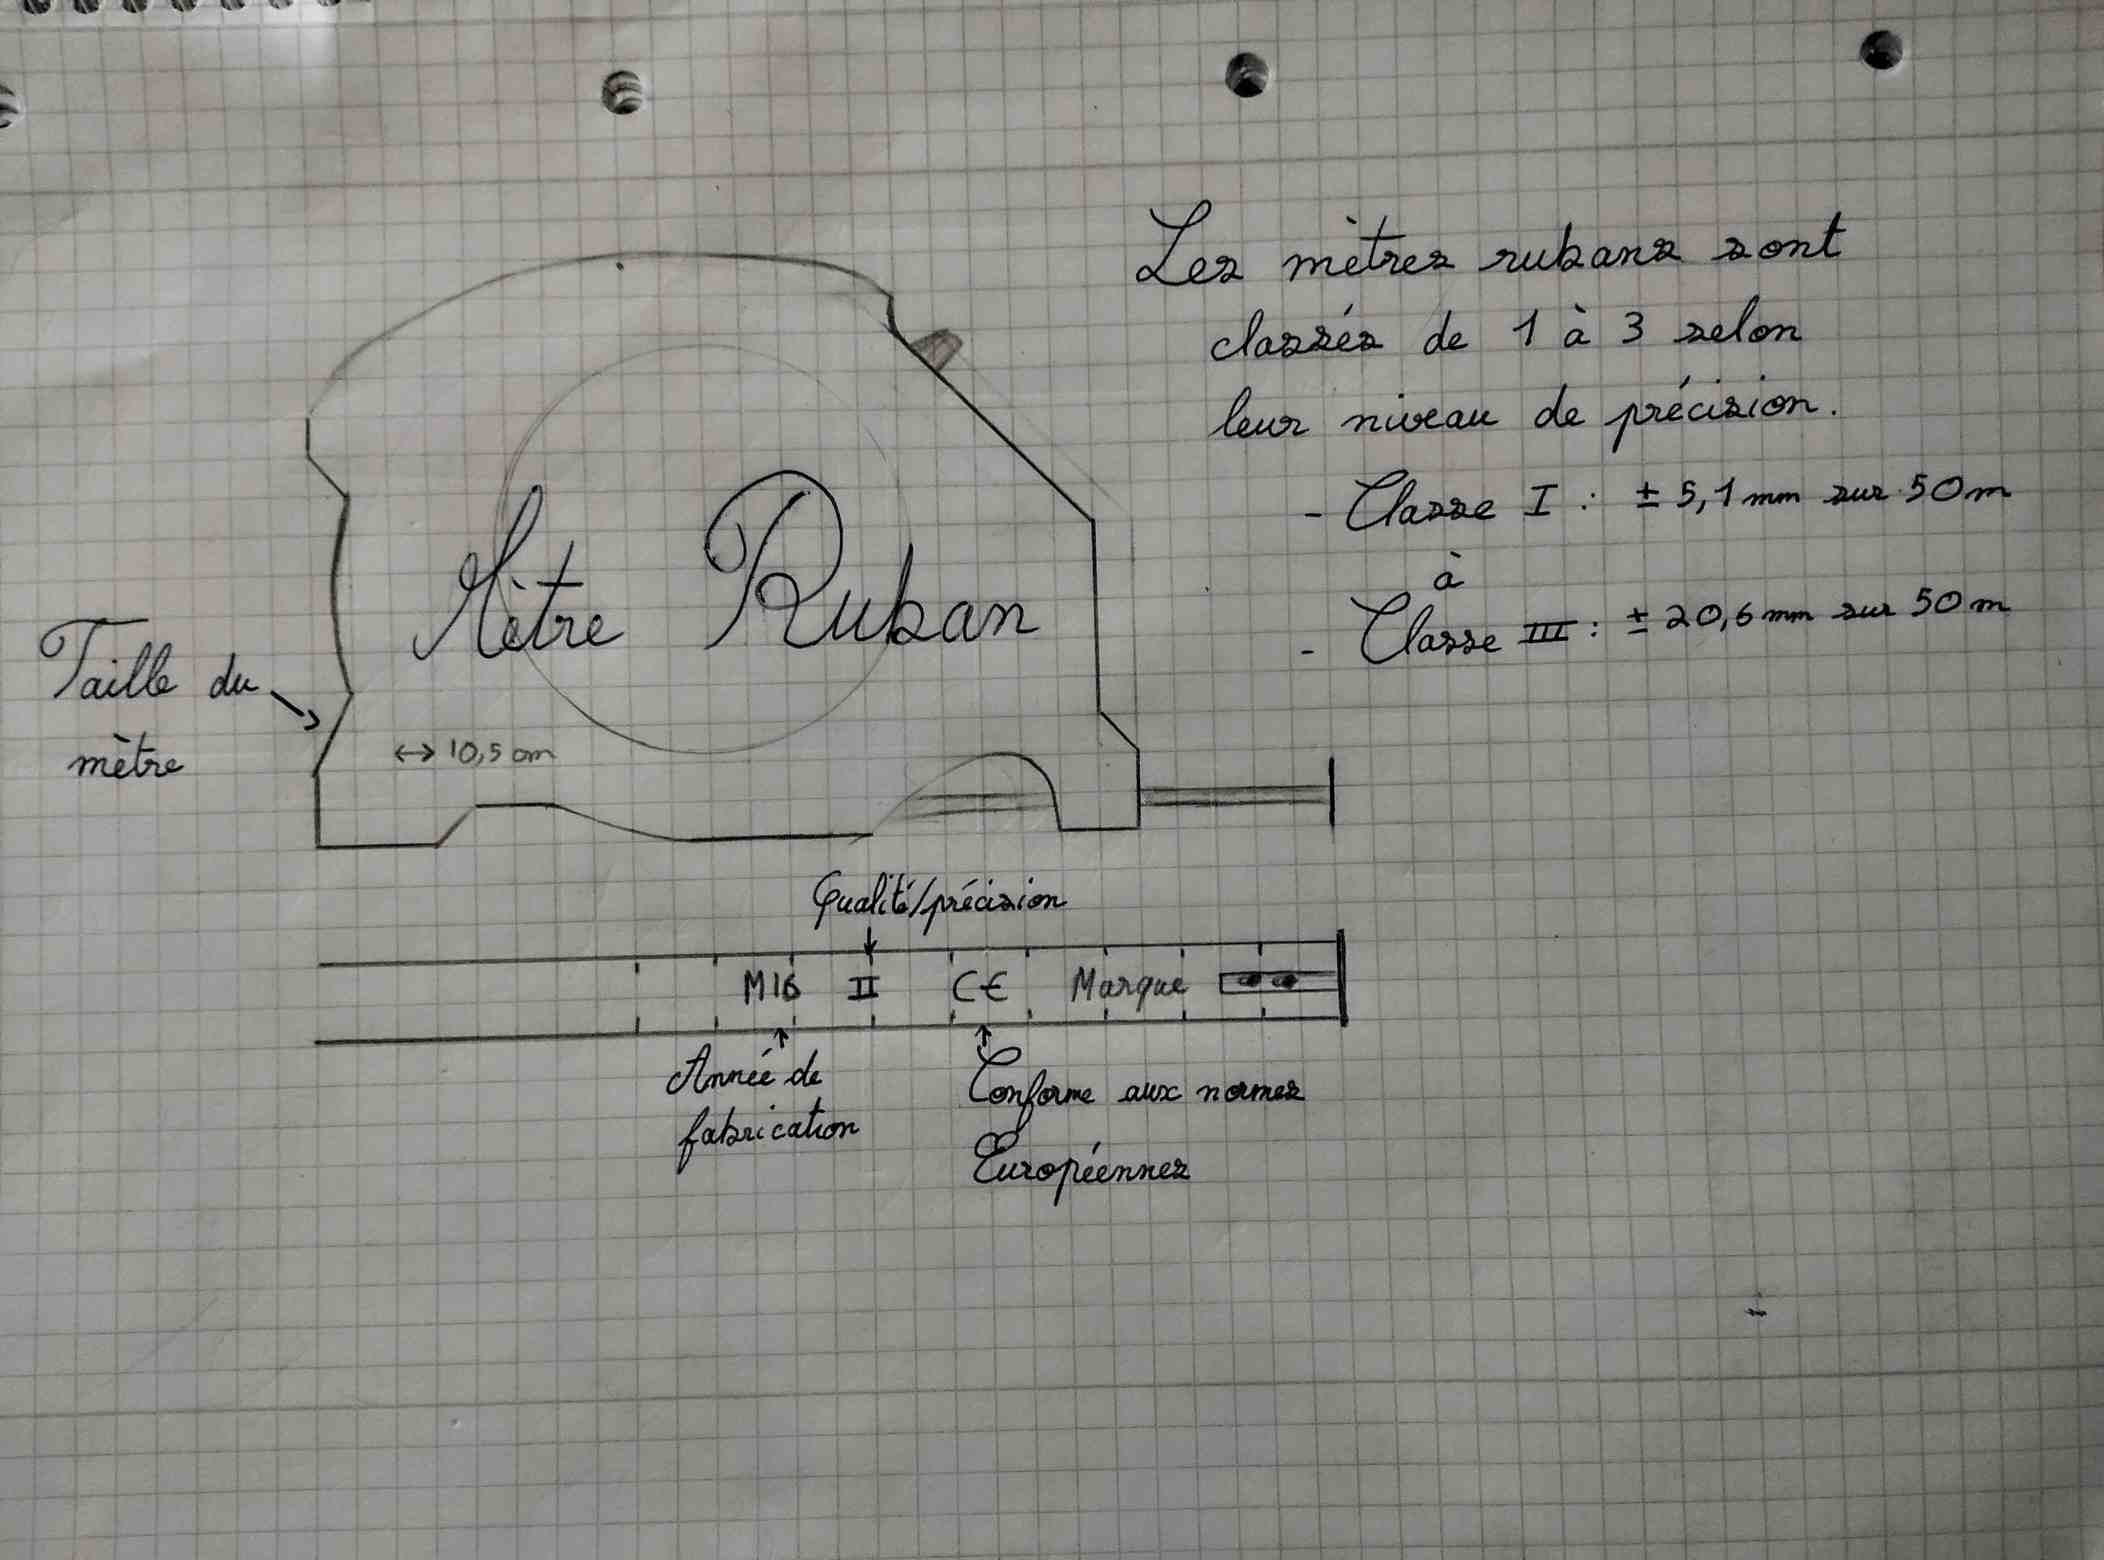 Les mètres rubans sont
classés de 1 à 3 selon
leur niveau de précision.
- Classe I : ± 5,1 mm sur 50 m
à
- Classe III : ± 20,6 mm sur 50 m
Mètre Ruban
Taille du
mètre
↔ 10,5 cm
Qualité/précision
M16 II CE Marque
Année de
fabrication
Conforme aux normes
Européennes